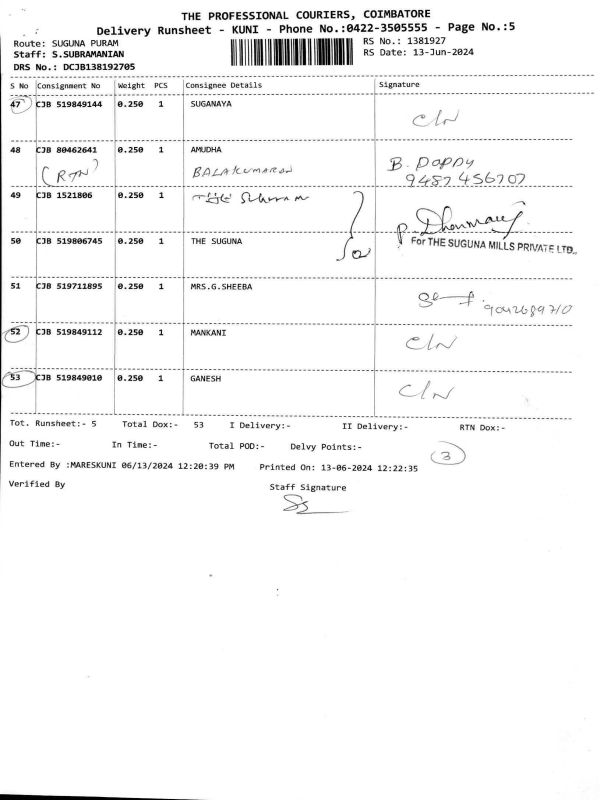 THE PROFESSIONAL COURIERS, COIMBATORE
Delivery Runsheet - KUNI - Phone No.:0422-3505555 - Page No.:5
Route: SUGUNA PURAM
RS No.: 1381927
Staff: S.SUBRAMANIAN
RS Date: 13-Jun-2024
DRS No.: DCJB138192705
S No Consignment No Weight PCS Consignee Details Signature
47 CJB 519849144 0.250 1 SUGANAYA
C/N
48 CJB 80462641 0.250 1 AMUDHA
(RTN) BALAKUMARAN B. POPPY
9487456707
49 CJB 1521806 0.250 1
50 CJB 519806745 0.250 1 THE SUGUNA
For THE SUGUNA MILLS PRIVATE LTD.,
51 CJB 519711895 0.250 1 MRS.G.SHEEBA
9042689710
52 CJB 519849112 0.250 1 MANKANI
C/N
53 CJB 519849010 0.250 1 GANESH
C/N
Tot. Runsheet:- 5 Total Dox:- 53 I Delivery:- II Delivery:- RTN Dox:-
Out Time:- In Time:- Total POD:- Delvy Points:-
3
Entered By :MARESKUNI 06/13/2024 12:20:39 PM Printed On: 13-06-2024 12:22:35
Verified By Staff Signature